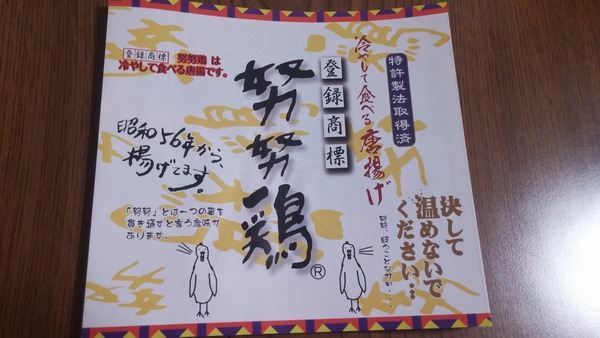 特許製法取得済
冷やして食べる唐揚げ
登録商標
努努鶏
®
登録商標 努努鶏 は
冷やして食べる唐揚です。
昭和56年から、
揚げてます。
「努努」とは一つの事を
貫き通すと言う意味が
あります。
決して
温めないで
ください…
努努、疑うことなかれ・・・・